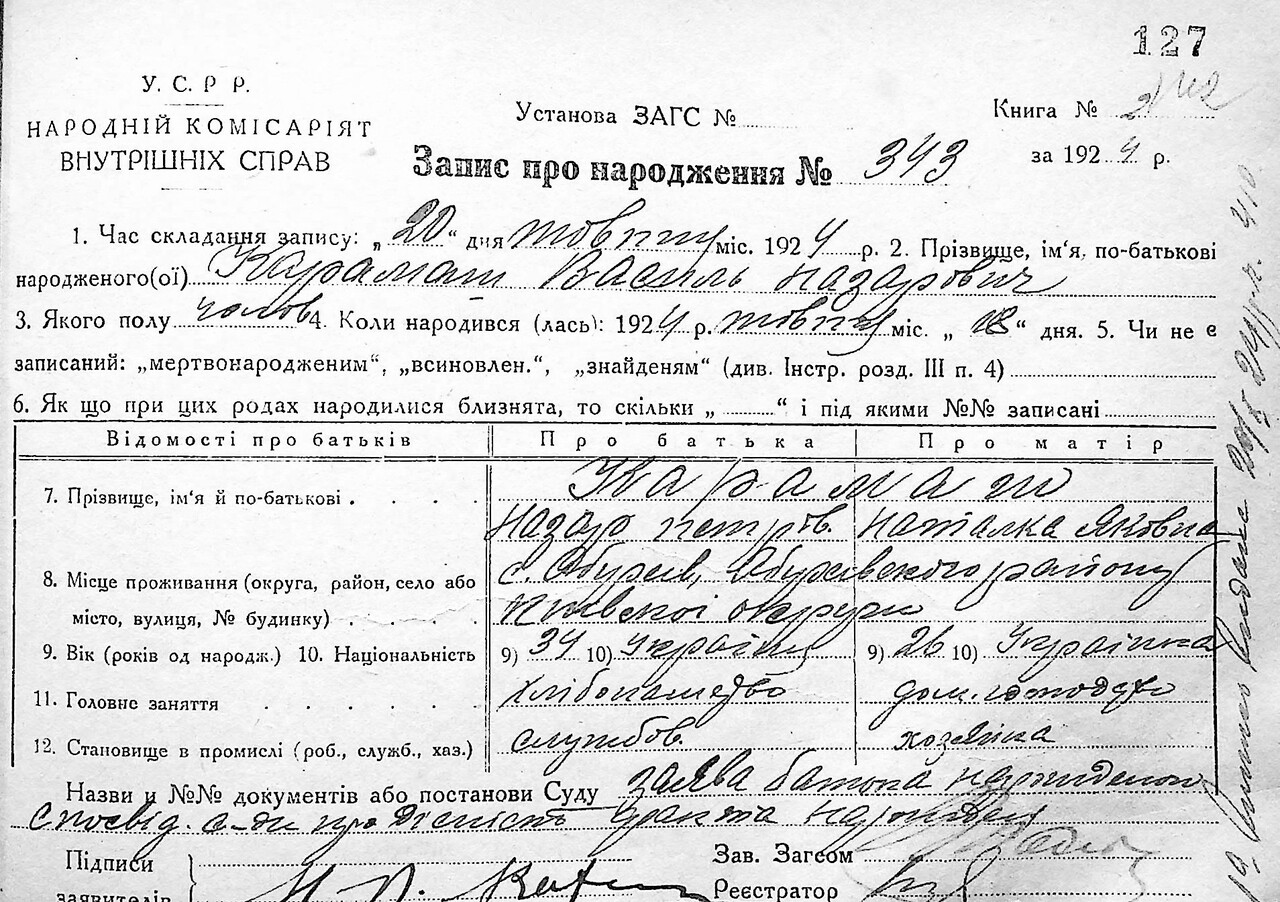 127
У. С. Р Р.
НАРОДНІЙ КОМІСАРІЯТ
ВНУТРІШНІХ СПРАВ
Установа ЗАГС №
Книга № 2
Запис про народження № 343
за 1924 р.
1. Час складання запису: „ 20 “ дня жовтня міс. 1924 р. 2. Прізвище, ім‘я, по-батькові
народженого(ої) Карамаш Василь Назарович
3. Якого полу чолов 4. Коли народився (лась): 1924 р. жовтня міс. „ 18 “ дня. 5. Чи не є
записаний: „мертвонародженим“, „всиновлен.“, „знайденям“ (див. Інстр. розд. III п. 4)
6. Як що при цих родах народилися близнята, то скільки „ “ і під якими №№ записані
Відомості про батьків Про батька Про матір
7. Прізвище, ім‘я й по-батькові . . . . Карамаш
Назар Петров. Наталка Яковна
8. Місце проживання (округа, район, село або с. Обухів, Обухівського району
місто, вулиця, № будинку) . . . . Київської округи
9. Вік (років од народж.) 10. Національність 9) 34 10) Українец 9) 26 10) Українка
11. Головне заняття . . . . . . хлібопашество дом.
12. Становище в промислі (роб., служб., хаз.) службов. хозяйка
Назви и №№ документів або постанови Суду заява батька
с посвід. про дійсність факта
Підписи
заявителів
Зав. Загсом
Реєстратор